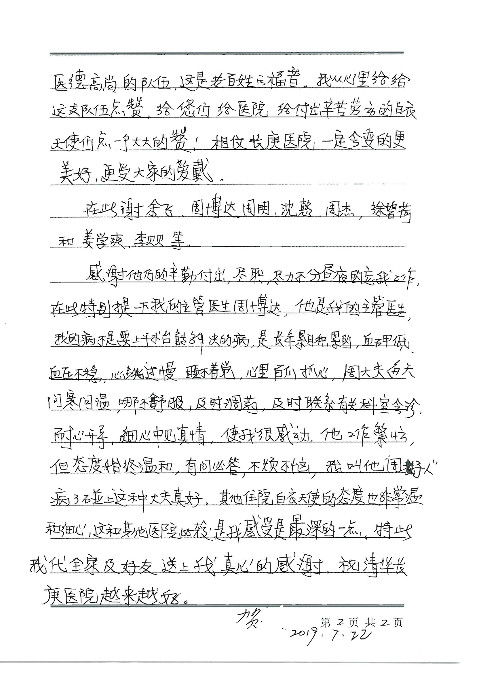 医德高尚的队伍,这是老百姓的福音。我从心里给给
这支队伍点赞,给您们 给医院 给付出辛苦劳动的白衣
天使们点一个大大的赞!相信长庚医院一定会变的更
美好,更受大家的爱戴。
在此谢余飞、周博达 周明,沈慧 周杰,徐
和 姜学爽、李贝贝 等。
感谢他们的辛勤付出,尽职,尽力不分昼夜的忘我工作,
在此特别提一下我的主管医生周博达,他是我的主管医生,
我的病不是要上手术台能解决的病,是长年累积累的,血压低,
血压不稳,心跳过慢 睡不着觉,心里有们抓心,周大夫每天
问寒问温,哪不舒服,及时调药,及时联系有关科室会诊,
耐心开导,细心中见真情,使我很感动,他工作繁忙,
但态度始终温和,有问必答,不烦不恼,我叫他周好人
病了碰上这种大夫真好,其他住院白衣天使的态度也非常温
和细心,这和其他医院比较是我感受是最深的一点,特此
我代全家及好友送上我真心的感谢,祝清华长
庚医院越来越好。
贺
第2页 共2页
2019.7.22